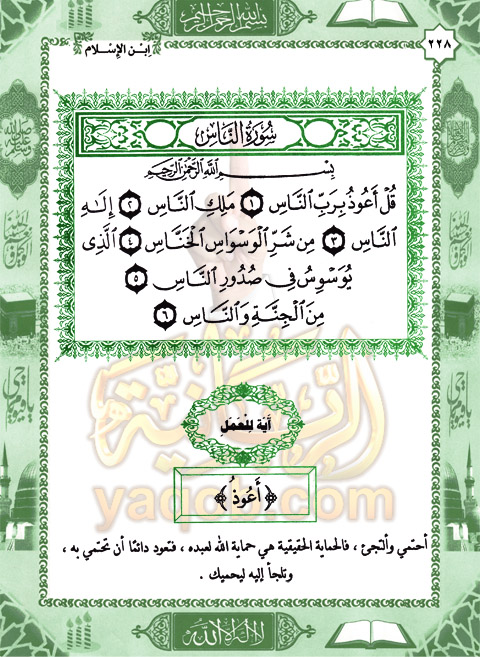 بسم الله الرحمن الرحيم
٢٢٨
ابن الإسلام
سُورَةُ النَّاسِ
بِسْمِ اللَّهِ الرَّحْمَٰنِ الرَّحِيمِ
قُلْ أَعُوذُ بِرَبِّ النَّاسِ ١ مَلِكِ النَّاسِ ٢ إِلَٰهِ
النَّاسِ ٣ مِن شَرِّ الْوَسْوَاسِ الْخَنَّاسِ ٤ الَّذِى
يُوَسْوِسُ فِى صُدُورِ النَّاسِ ٥
مِنَ الْجِنَّةِ وَالنَّاسِ ٦
آيَة لِلْعَمَل
﴿ أَعُوذُ ﴾
yaqob.com
أحتمي وألتجئ ، فالحماية الحقيقية هي حماية الله لعبده ، فتعود دائمًا أن تحتمي به ،
وتلجأ إليه ليحميك .
لا إله إلا الله